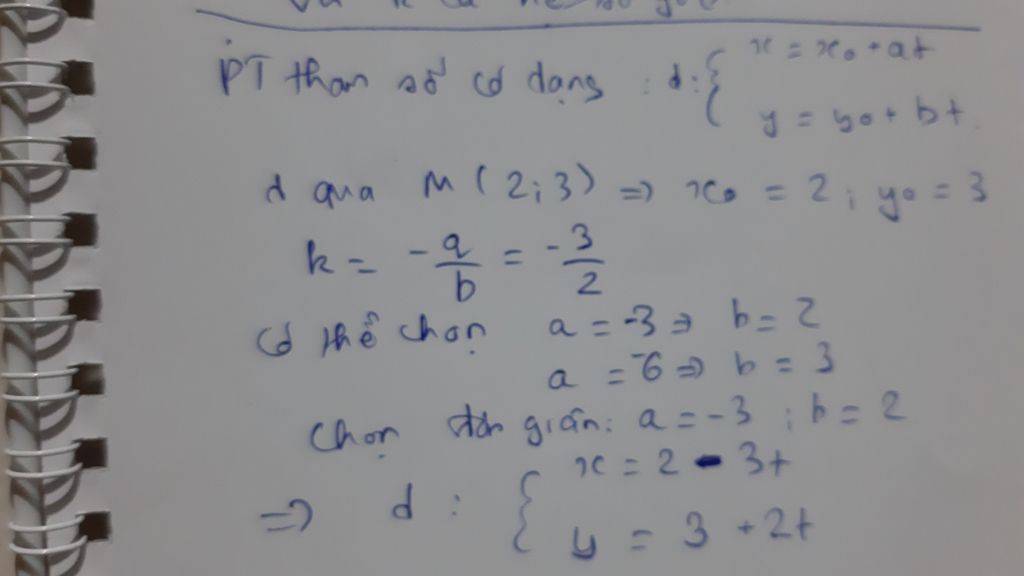 PT tham số có dạng : d: { x = x₀ + at
y = y₀ + bt.
d qua M(2;3) => x₀ = 2; y₀ = 3
k = -a/b = -3/2
có thể chọn a = -3 => b = 2
a = -6 => b = 3
Chọn đơn giản: a = -3; b = 2
=> d : { x = 2 - 3t
y = 3 + 2t